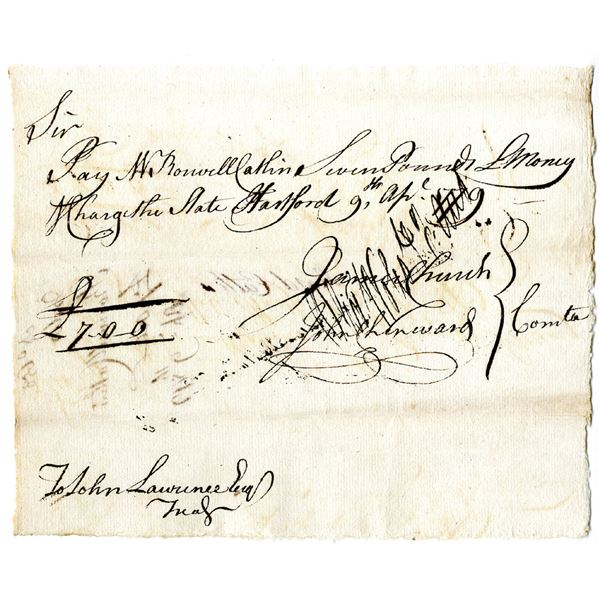 Sir
Pay Mr Roswell Catlin Seven Pounds L Money
& Charge the State Hartford 9th Apl
James Church
£ 7-0-0
John Chenward } Comtee
To John Lawrence Esqr
Treas